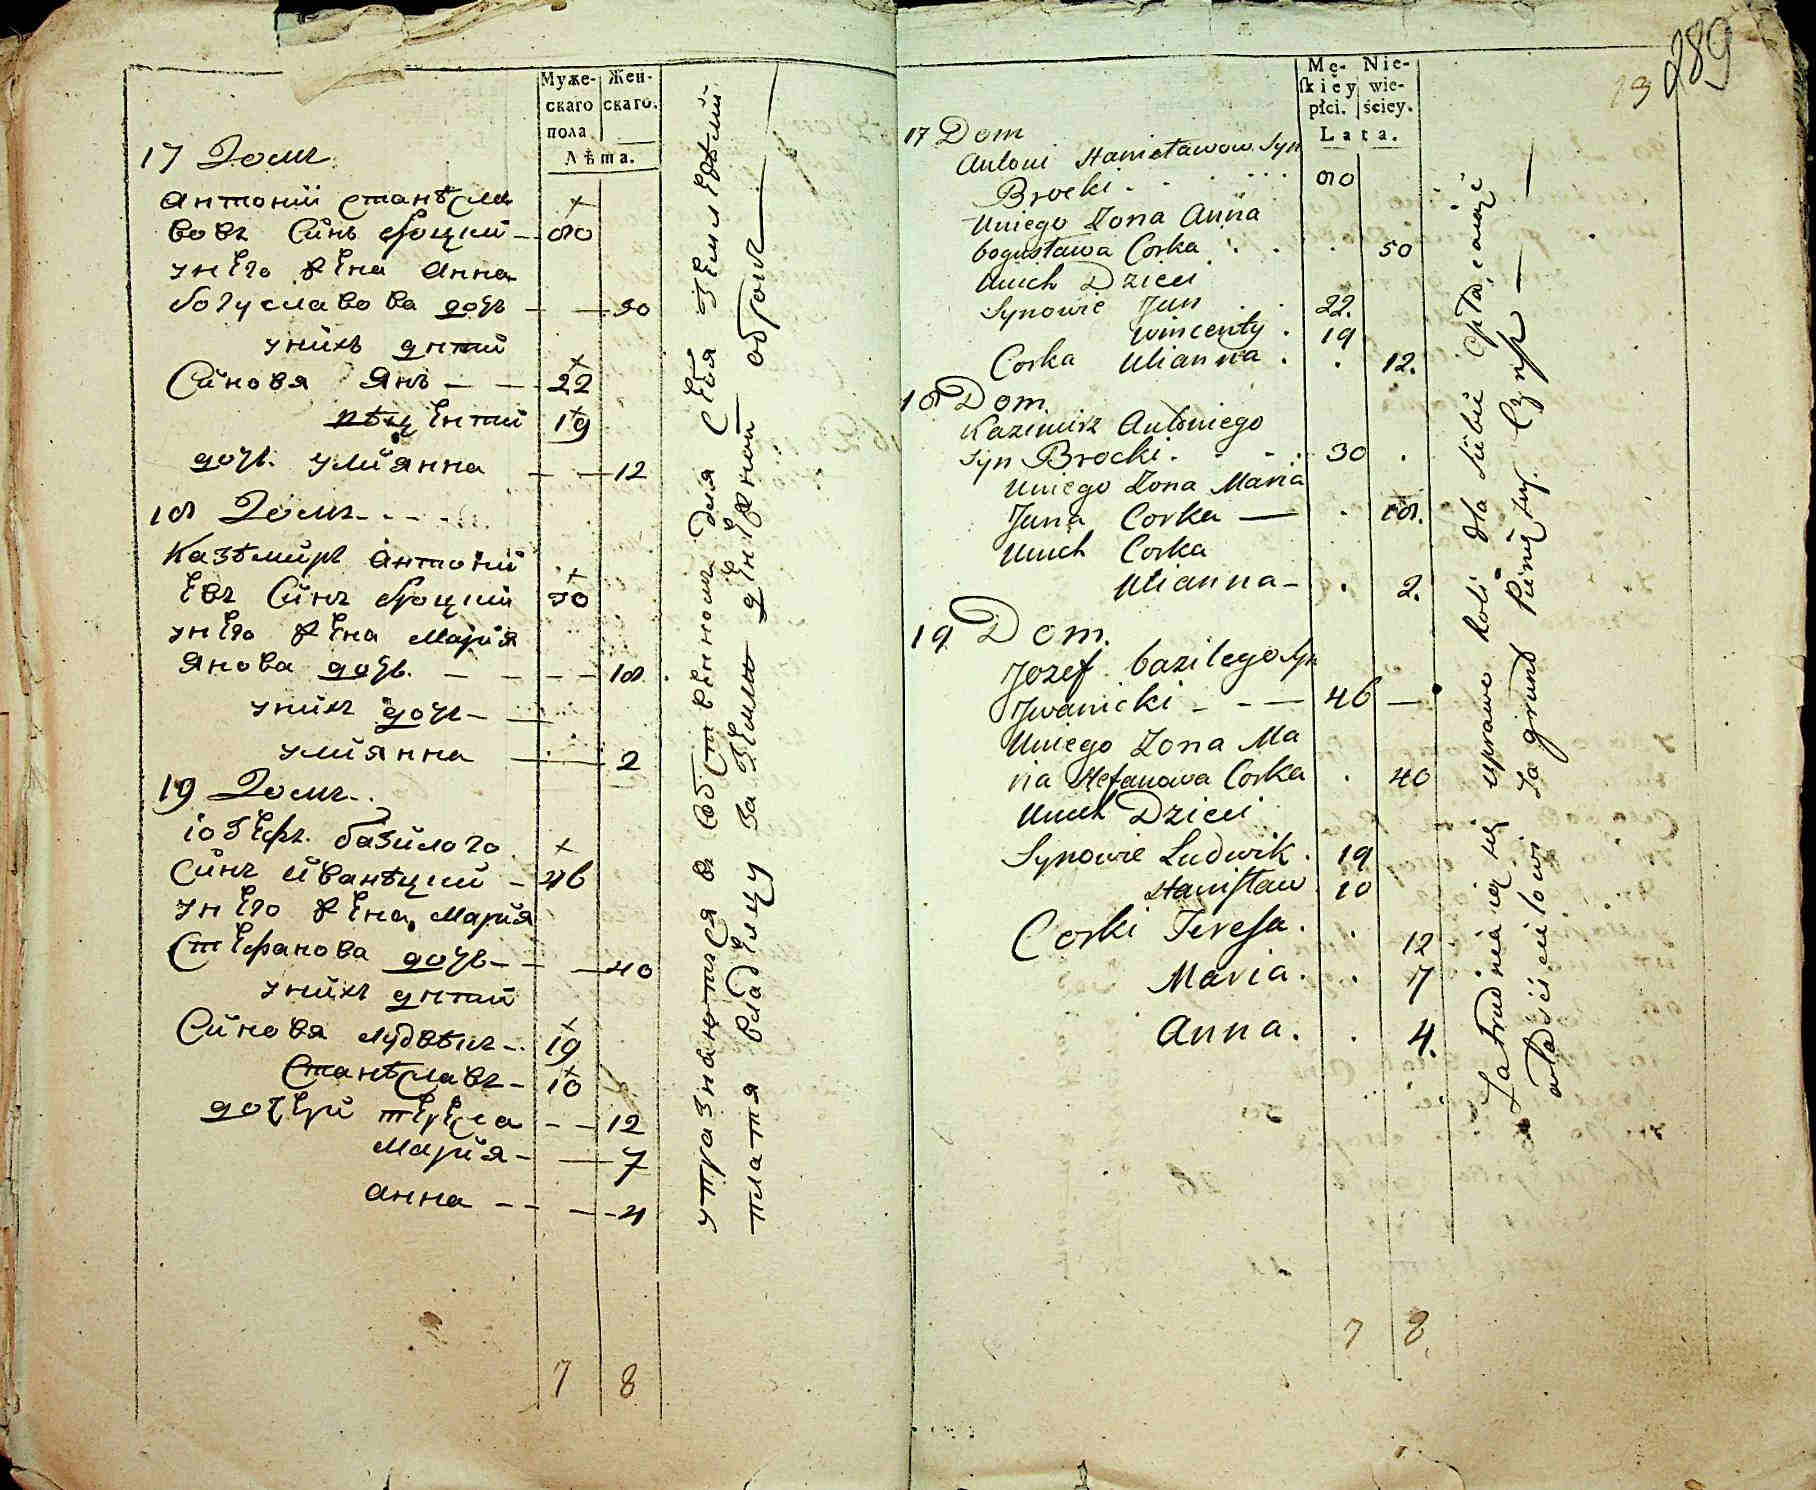 Муже-
скаго
пола.
Жен-
скаго.
Лѣта.
17 Домъ
Антоній Станѣсла
вовъ Сынъ Броцкій — 80
у нѣго жена Анна
Богуславова дочь — — 50
у нихъ дѣтий
Сыновя Янъ — — 22
вѣнцентий 19
дочь Улиянна — — 12
18 Домъ
Казѣмиръ Антоній
евъ Сынъ Броцкій 30
у нѣго жена Мария
Янова дочь. — — — 18
у нихъ дочь — —
Улиянна — — 2
19 Домъ
Іозефъ базилого
Сынъ Иванѣцкий — 46
у нѣго жена Мария
Стефанова дочь — — 40
у нихъ дѣтий
Сыновя Лудвѣкъ — 19
Станѣславъ — 10
дочери Тереса — — 12
Мария — — 7
Анна — — — 4
7 8
упразнаются въ собственномъ для себя земледѣлий
платя владелцу за землю денежной оброкъ —
289
13
Mę-
ſkiey
płci.
Nie-
wie-
ściey.
Lata.
17 Dom
Antoni Stanisławow Syn
Brocki . . . . . 80
Uniego Zona Anna
bogusława Corka . . . 50
Unich Dzieci
Synowie Jan . . 22.
wincenty . 19
Corka Ulianna . . 12.
18 Dom.
Kazimirz Antoniego
Syn Brocki . - - . 30 .
Uniego Zona Maria
Jana Corka — . 18.
Unich Corka
Ulianna — . 2.
19 Dom.
Jozef bazilego Syn
Jwanicki - - — 46 —
Uniego Zona Ma
ria Stefanowa Corka . 40
Unich Dzieci
Synowie Ludwik . 19
Stanisław . 10
Corki Teresa . . 12
Maria . . 7
Anna . . 4.
7 8
Zatrudniaią się uprawo Roli dla siebie opłacaiąc
właścicielowi za grunt Pieniężny Czynsz —